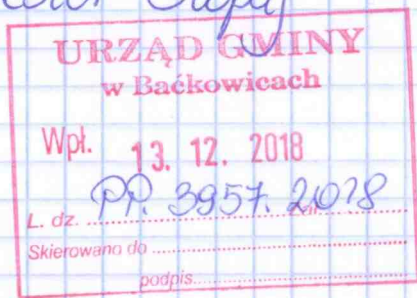 URZĄD GMINY
w Baćkowicach
Wpł. 13. 12. 2018
L. dz. PP. 3957. 2018
Skierowano do
podpis